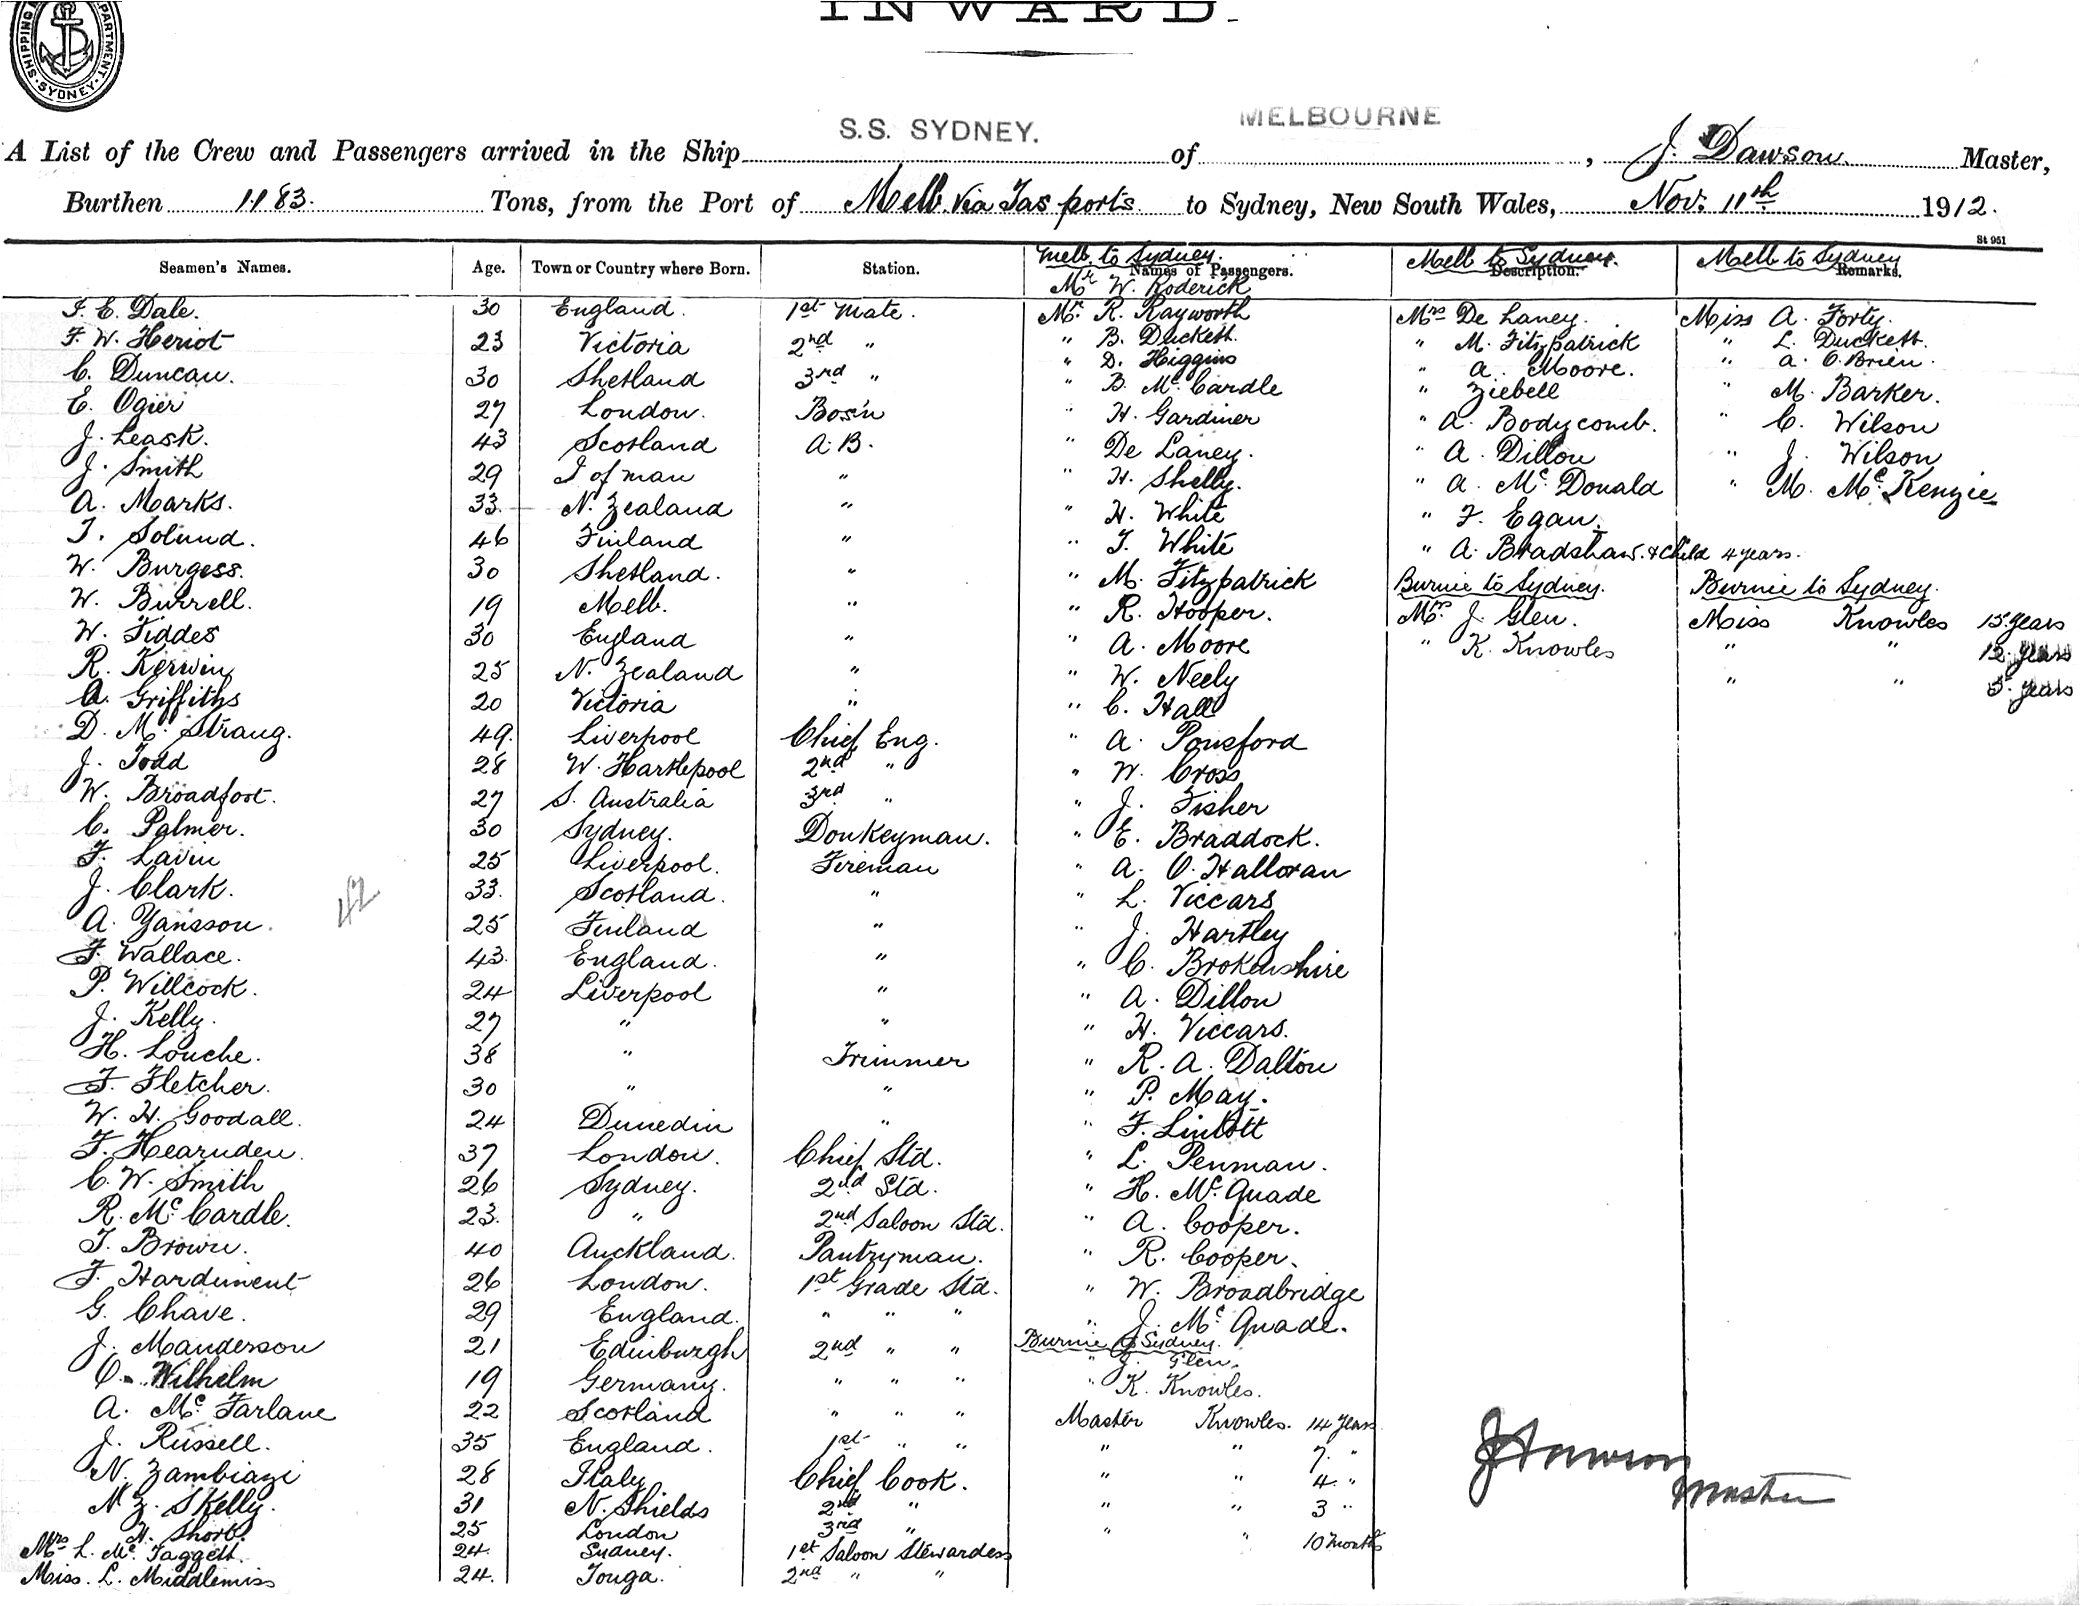 INWARD.
SHIPPING DEPARTMENT SYDNEY
S.S. SYDNEY. MELBOURNE
A List of the Crew and Passengers arrived in the Ship of , J. Dawson Master,
Burthen 1183. Tons, from the Port of Melb. via Tas ports to Sydney, New South Wales, Nov. 11th 1912.
St 951
Melb. to Sydney. Melb to Sydney. Melb to Sydney
Seamen's Names. Age. Town or Country where Born. Station. Names of Passengers. Description. Remarks.
Mr W. Roderick
J. E. Dale. 30 England. 1st Mate. Mr. R. Rayworth Mrs De Laney. Miss A. Forty.
F. W. Heriot 23 Victoria 2nd " " B. Duckett. " M. Fitzpatrick " L. Duckett.
" D. Higgins " A. O.Brien.
C. Duncan. 30 Shetland 3rd " " B. McCardle " A. Moore. " M. Barker.
E. Ogier 27 London. Bos'n " H. Gardiner " Ziebell " C. Wilson
J. Leask. 43 Scotland A.B. " De Laney. " A. Bodycomb. " J. Wilson
J. Smith 29 I of man " " H. Shelly. " A. Dillon " M. McKenzie
A. Marks. 33 N. Zealand " " H. White " A. McDonald
T. Solund. 46 Finland " " T. White " F. Egan.
W. Burgess. 30 Shetland. " " M. Fitzpatrick " A. Bradshaw. & child 4 years.
W. Burrell. 19 Melb. " " R. Hooper. Burnie to Sydney. Burnie to Sydney.
W. Fiddes 30 England " " A. Moore Mrs. J. Glen. Miss Knowles 15 years
R. Kerwin 25 N. Zealand " " W. Neely " K. Knowles " " 12 years
A. Griffiths 20 Victoria " " C. Hall " " 5 years
D. Mc Strang. 49. Liverpool Chief Eng. " A. Ponsford
J. Todd 28 W. Hartlepool 2nd " " W. Cross
W. Broadfoot. 27 S. Australia 3rd " " J. Fisher
C. Palmer. 30 Sydney. Donkeyman. " E. Braddock.
F. Lavin 25 Liverpool. Fireman " A. O.Halloran
J. Clark. 33. Scotland. " " L. Viccars
42
A. Yansson. 25 Finland " " J. Hartley
F. Wallace. 43. England. " " C. Brokenshire
P. Willcock. 24 Liverpool " " A. Dillon
J. Kelly. 27 " " " H. Viccars.
H. Louche. 38 " Trimmer " R. A. Dalton
F. Fletcher. 30 " " " P. May.
W. H. Goodall. 24 Dunedin " " F. Lintott
F. Hearnden. 37 London. Chief Std. " L. Penman.
C. W. Smith 26 Sydney. 2nd Std. " H. McQuade
R. McCardle. 23. " 2nd Saloon Std. " A. Cooper.
T. Brown. 40 Auckland. Pantryman. " R. Cooper.
F. Hardiment 26 London. 1st Grade Std. " W. Broadbridge
G. Chave. 29 England. " " " " J. McQuade.
J. Manderson 21 Edinburgh 2nd " " Burnie to Sydney.
" J. Glen.
O. Wilhelm 19 Germany. " " " " K. Knowles.
A. McFarlane 22 Scotland " " " Master Knowles. 14 years
J. Russell. 35 England. 1st " " " " 7. "
N. Zambiazi 28 Italy Chief Cook. " " 4. "
N. Z. Skelly. 31 N. Shields 2nd " " " 3 "
H. Short. 25 London 3rd " " " 10 months
Mrs L. McTaggett. 24. Sydney. 1st Saloon Stewardess
Miss. L. Middlemiss 24. Tonga. 2nd " "
J Dawson
Master